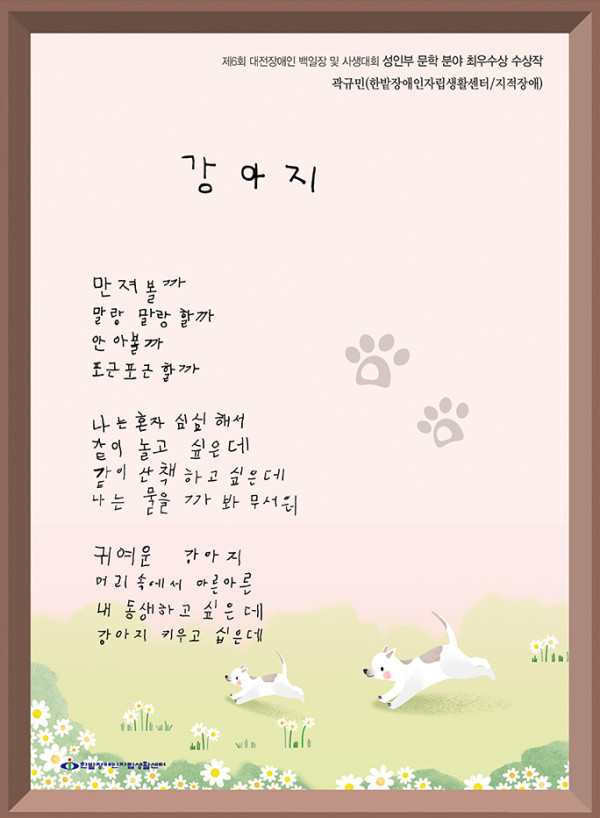 제6회 대전장애인 백일장 및 사생대회 성인부 문학 분야 최우수상 수상작
곽규민(한밭장애인자립생활센터/지적장애)
강아지
만져볼까
말랑 말랑할까
안아볼까
포근포근할까
나는 혼자 심심해서
같이 놀고 싶은데
같이 산책하고 싶은데
나는 물을까봐 무서워
귀여운 강아지
머리속에서 아른아른
내 동생하고 싶은데
강아지 키우고 십은데
한밭장애인자립생활센터